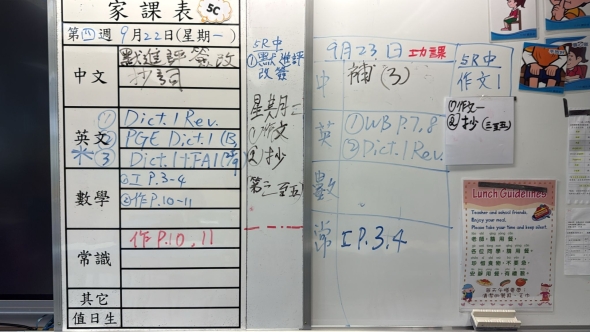 家課表
5C
第四週 9月22日(星期一)
中文
默進評簽改
抄詞
英文
① Dict.1 Rev.
② PGE Dict.1 (B)
③ Dict.1 + FAI
數學
①工 P.3-4
②作 P.10-11
常識
作 P.10, 11
其它
值日生
5R中
①默進評
改簽
星期二
①作文
②抄
第三至五
9月23日 功課
中 補(3)
英 ①WB P.7, 8
②Dict.1 Rev.
數
常 工 P.3, 4
5R中
作文1
①作文一
②抄(三至五)
Lunch Guidelines
Teacher and school friends,
Enjoy your meal.
Please take your time and keep silent.